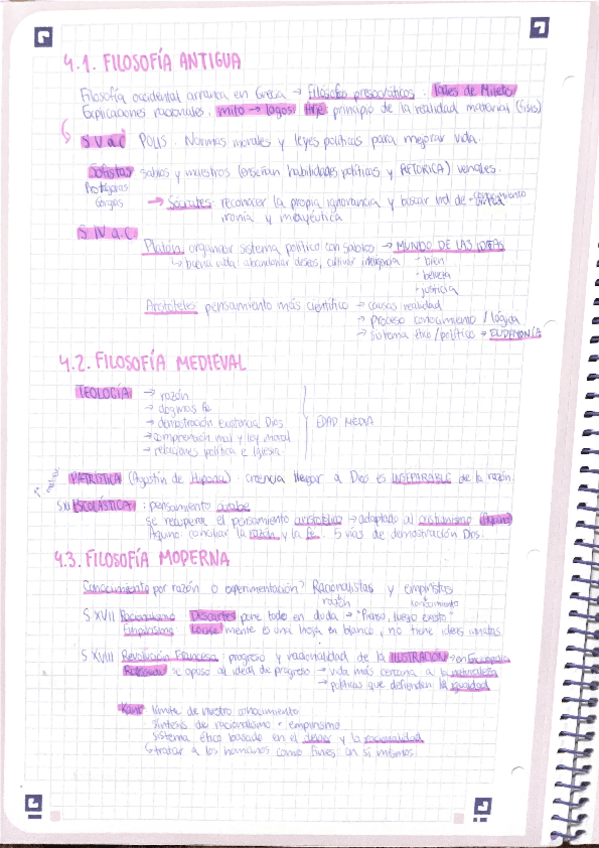 4.1. FILOSOFÍA ANTIGUA
Filosofía occidental arranca en Grecia → Filósofos presocráticos. Tales de Mileto
Explicaciones racionales. mito → logos. Arjé principio de la realidad material (fisis)
S V a.C POLIS. Normas morales y leyes políticas para mejorar vida.
Sofistas sabios y maestros (enseñan habilidades políticas y RETÓRICA) venales.
Protágoras
Gorgias → Sócrates: reconocer la propia ignorancia y buscar
ironía y mayéutica
S IV a.C.
Platón, organizar sistema político con sabios → MUNDO DE LAS IDEAS
↳ buena vida: abandonar deseos, cultivar inteligencia - bien
- belleza
- justicia
Aristóteles pensamiento más científico → causas realidad
→ Proceso conocimiento / lógica
→ Sistema ético / político → EUDEMONÍA
4.2. FILOSOFÍA MEDIEVAL
TEOLOGÍA → razón
→ dogmas fe
→ demostración existencia Dios EDAD MEDIA
→ comprensión mal y ley moral
→ relaciones política e Iglesia
PATRÍSTICA (Agustín de Hipona): creencia llegar a Dios es INSEPARABLE de la razón.
ESCOLÁSTICA: pensamiento árabe
se recupera el pensamiento aristotélico → adaptado al cristianismo (Aquino)
Aquino: conciliar la razón y la fe. 5 vías de demostración Dios.
4.3. FILOSOFÍA MODERNA
Conocimiento por razón o experimentación? Racionalistas y empiristas
razón conocimiento
S XVII Racionalismo Descartes pone todo en duda → "Pienso, luego existo"
Empirismo Locke mente es una hoja en blanco, no tiene ideas innatas
S XVIII Revolución Francesa: progreso y racionalidad de la ILUSTRACIÓN → en Enciclopedia
Rousseau se opuso al ideal de progreso → vida más cercana a la naturaleza
→ políticas que defiendan la igualdad
Kant límite de nuestro conocimiento
síntesis de racionalismo + empirismo
sistema ético basado en el deber y la racionalidad
↳ tratar a los humanos como fines en sí mismos.